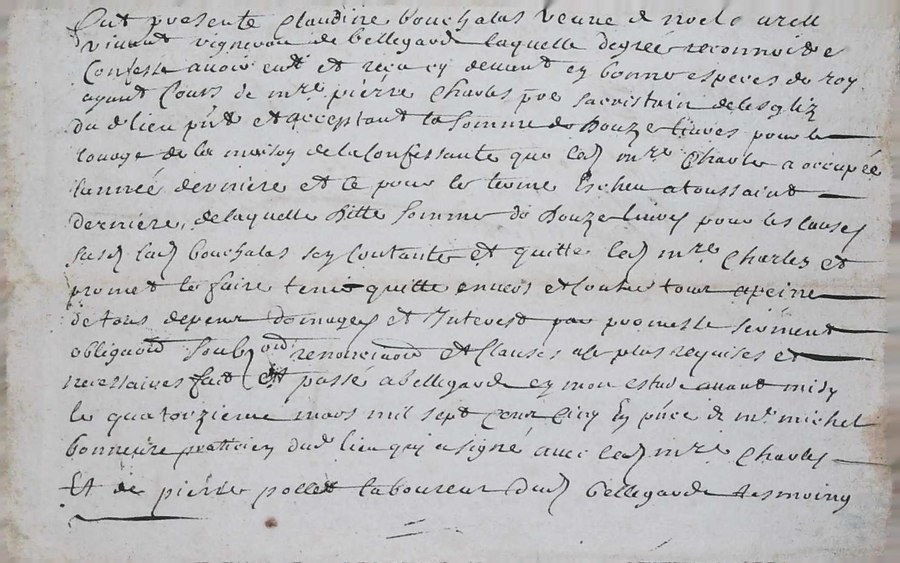 Fut presente Claudine bouchalas veuve de noel
vivant vigneron de bellegarde laquelle de gré reconnoit et
confesse avoir eut et receu cy devant en bonne especes du roy
ayant cours de mre pierre Charles pbre sacristain de lesglize
dud lieu pnt et acceptant la somme de douze livres pour le
louage de la maison de la confessante que led mre Charles a occupée
lannée derniere et ce pour le terme Escheu a toussaint
derniere, de laquelle ditte somme de douze livres pour les causes
susd lad bouchalas sen contante et quitte led mre Charles et
promet le faire tenir quitte envers et contre tous a peine
de tous depens domages et Interest par promesse serment
obligaon soubzon renonciaon et clauses a le plus requises et
necessaires fait et passé a bellegarde en mon estude avant midy
le quatorzieme mars mil sept cent cinq En pnce de mr michel
bonneure praticien dud lieu qui a signé avec led mre Charles
Et de pierre pollet laboureur dud bellegarde tesmoins